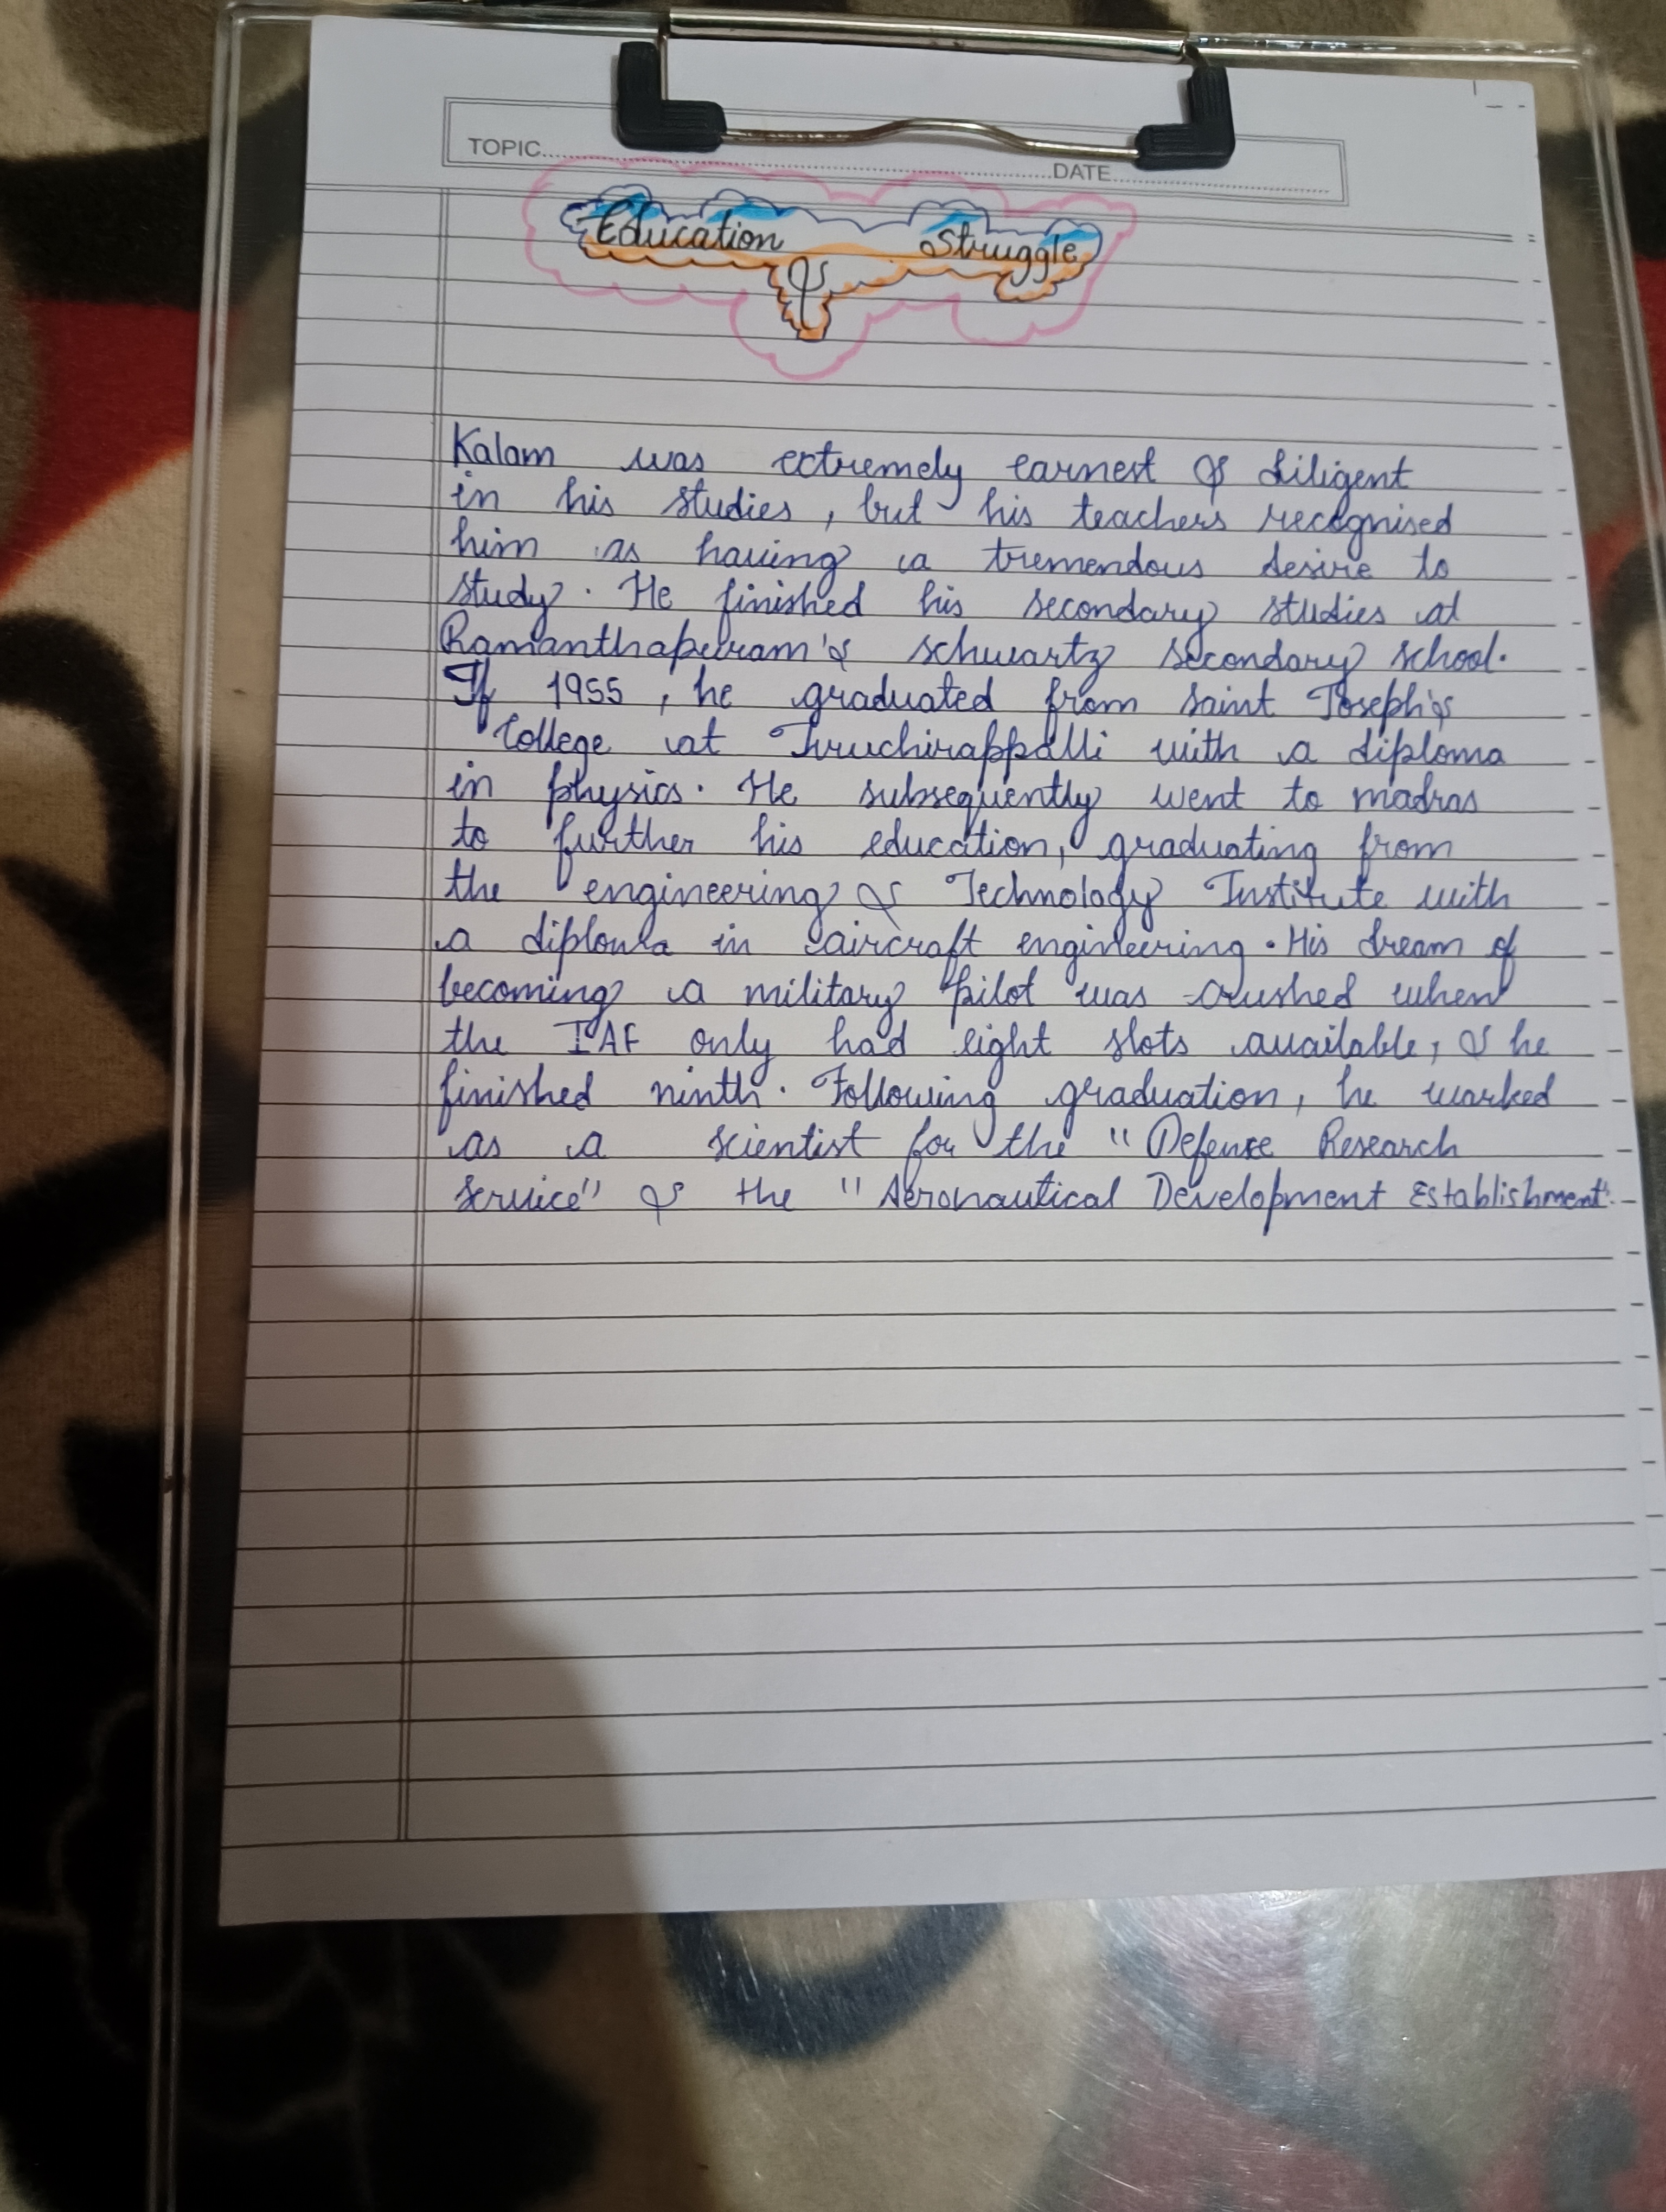 TOPIC
DATE
Education & Struggle
Kalam was extremely earnest & diligent
in his studies, but his teachers recognised
him as having a tremendous desire to
study. He finished his secondary studies at
Ramanthapuram's schwartz secondary school.
If 1955, he graduated from saint Joseph's
College at Tiruchirappalli with a diploma
in physics. He subsequently went to madras
to further his education, graduating from
the engineering & Technology Institute with
a diploma in aircraft engineering. His dream of
becoming a military pilot was crushed when
the IAF only had eight slots available, & he
finished ninth. Following graduation, he worked
as a scientist for the "Defense Research
Service" & the "Aeronautical Development Establishment".